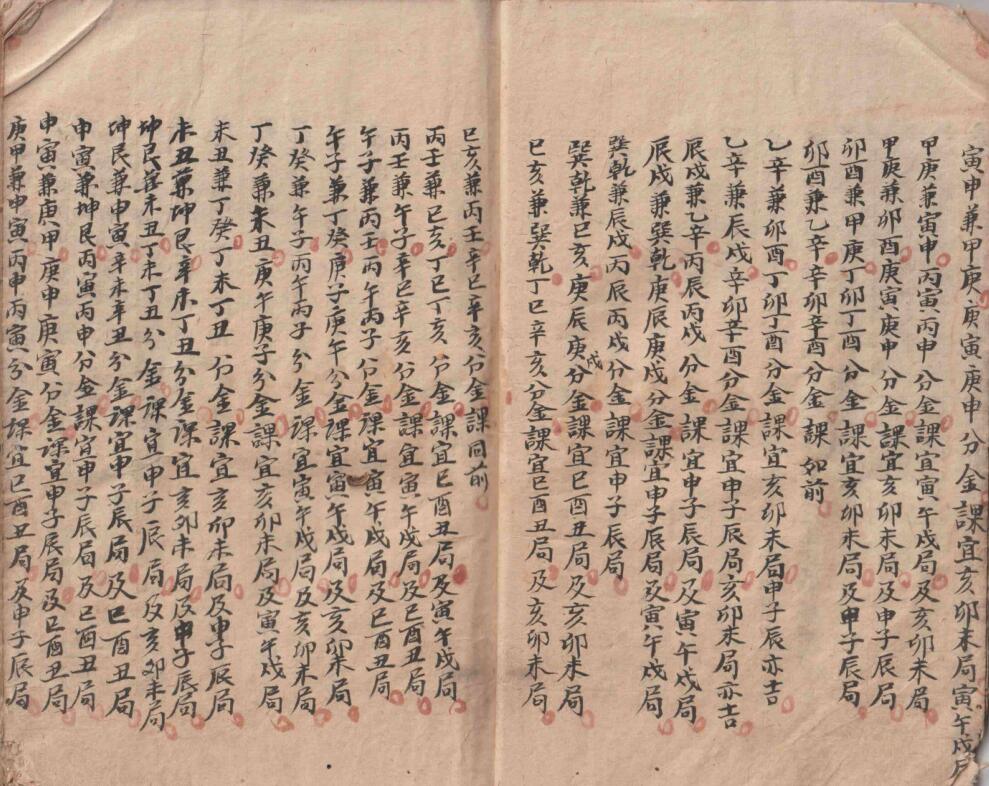 寅申兼甲庚庚寅庚申分金課宜亥卯未局寅午戌局
甲庚兼寅申丙寅丙申分金課宜寅午戌局及亥卯未局
甲庚兼卯酉庚寅庚申分金課宜亥卯未局及申子辰局
卯酉兼甲庚丁卯丁酉分金課宜亥卯未局及申子辰局
卯酉兼乙辛辛卯辛酉分金課如前
乙辛兼卯酉丁卯丁酉分金課宜亥卯未局申子辰亦吉
乙辛兼辰戌辛卯辛酉分金課宜申子辰局亥卯未局亦吉
辰戌兼乙辛丙辰丙戌分金課宜申子辰局及寅午戌局
辰戌兼巽乾庚辰庚戌分金課宜申子辰局及寅午戌局
巽乾兼辰戌丙辰丙戌分金課宜申子辰局
巽乾兼巳亥庚辰庚戌分金課宜巳酉丑局及亥卯未局
巳亥兼巽乾丁巳辛亥分金課宜巳酉丑局及亥卯未局
巳亥兼丙壬辛巳辛亥分金課同前
丙壬兼巳亥丁巳丁亥分金課宜巳酉丑局及寅午戌局
丙壬兼午子辛巳辛亥分金課宜寅午戌局及巳酉丑局
午子兼丙壬丙午丙子分金課宜寅午戌局及巳酉丑局
午子兼丁癸庚子庚午分金課宜寅午戌局及亥卯未局
丁癸兼午子丙午丙子分金課宜寅午戌局及亥卯未局
丁癸兼未丑庚午庚子分金課宜亥卯未局及寅午戌局
未丑兼丁癸丁未丁丑分金課宜亥卯未局及申子辰局
未丑兼坤艮辛未丁丑分金課宜亥卯未局及申子辰局
坤艮兼未丑丁未丁丑分金課宜申子辰局及亥卯未局
坤艮兼申寅辛未辛丑分金課宜申子辰局及巳酉丑局
申寅兼坤艮丙寅丙申分金課宜申子辰局及巳酉丑局
申寅兼庚甲庚申庚寅分金課宜申子辰局及巳酉丑局
庚甲兼申寅丙申丙寅分金課宜巳酉丑局及申子辰局